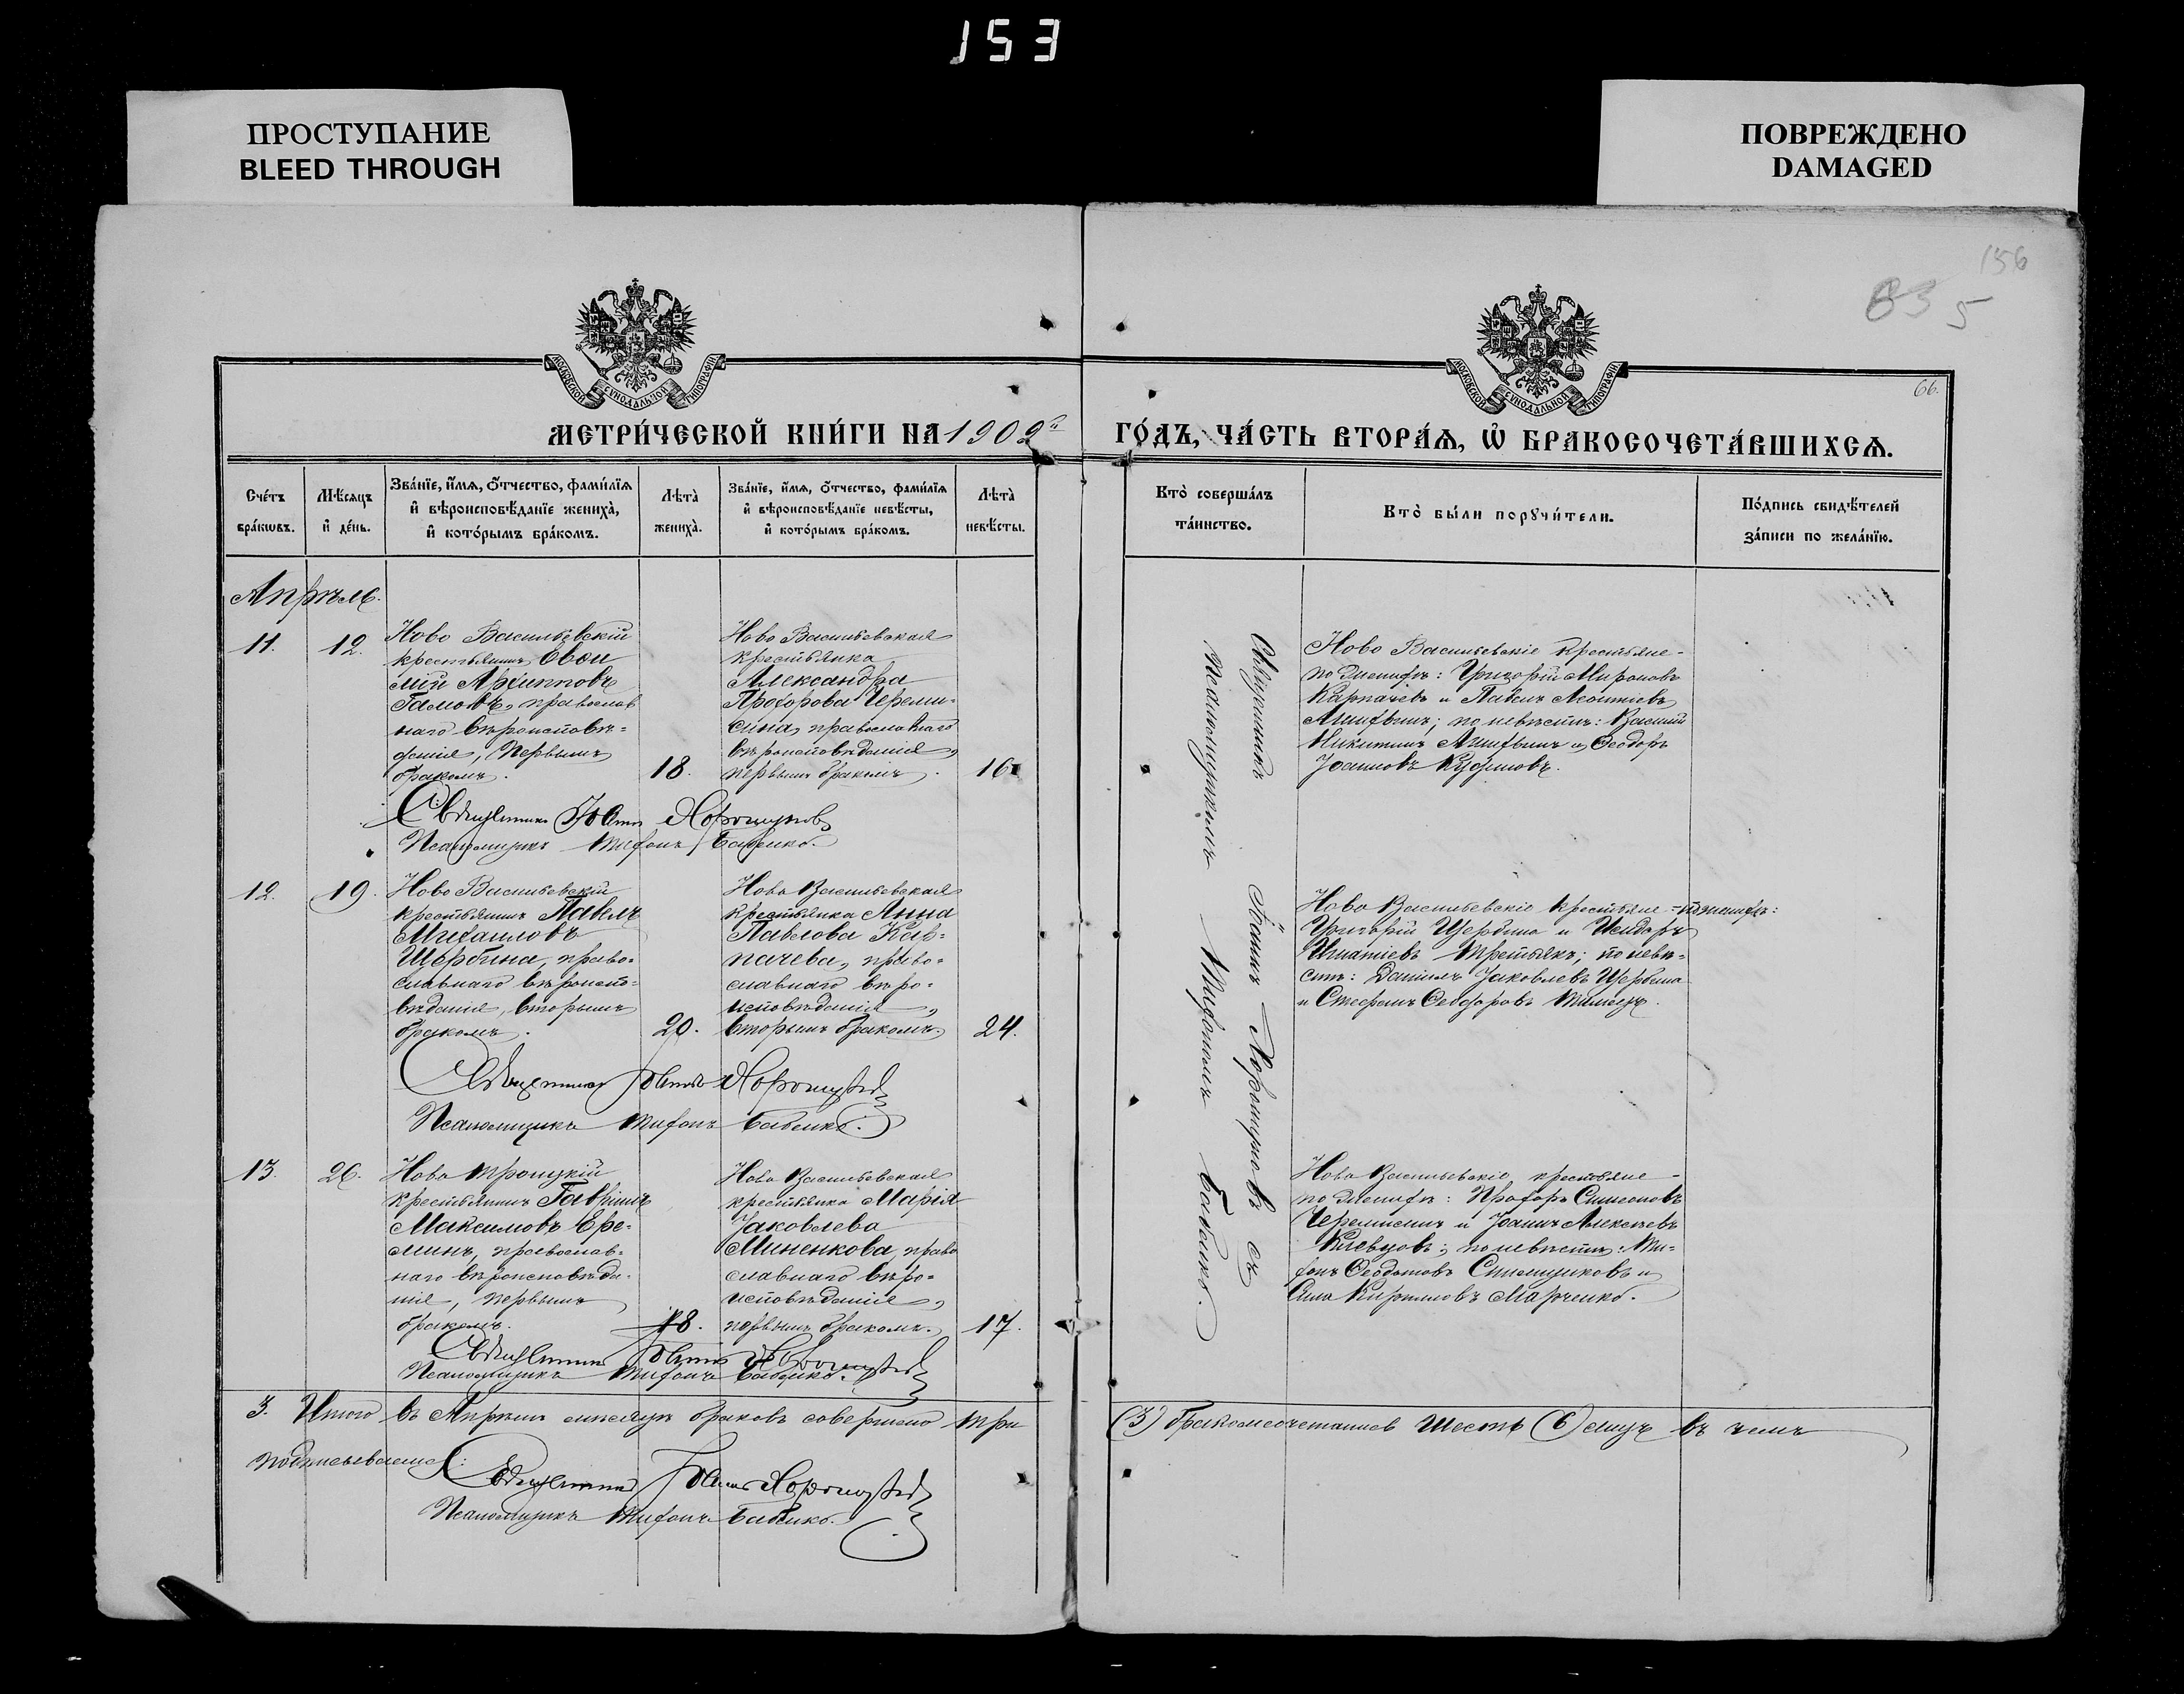 153
ПРОСТУПАНИЕ
BLEED THROUGH
ПОВРЕЖДЕНО
DAMAGED
156
83 5
66.
МОСКОВСКОЙ СѴНОДАЛЬНОЙ ТИПОГРАФІИ
МОСКОВСКОЙ СѴНОДАЛЬНОЙ ТИПОГРАФІИ
МЕТРИ́ЧЕСКОЙ КНИ́ГИ НА 1902й
ГО́ДЪ, ЧА́СТЬ ВТОРА́Ѧ, Ѡ БРАКОСОЧЕТА́ВШИХСѦ.
Сче́тъ бра́кѡвъ.
Мѣ́сѧцъ и҆ де́нь.
Зва́нїе, и҆́мѧ, ѻ҆́тчество, фами́лїѧ
и҆ вѣроисповѣ́данїе жениха̀,
и҆ кото́рымъ бра́комъ.
Лѣта̀ жениха̀.
Зва́нїе, и҆́мѧ, ѻ҆́тчество, фами́лїѧ
и҆ вѣроисповѣ́данїе невѣ́сты,
и҆ кото́рымъ бра́комъ.
Лѣта̀ невѣ́сты.
Кто̀ соверша́лъ
та́инство.
Кто̀ бы́ли порꙋчи́тели.
По́дпись свидѣ́телей
за́писи по жела́нїю.
Апрѣль.
11.
12.
Ново Васильевскій
крестьянинъ Евѳи
мій Архипповъ
Гамовъ, православ
наго вѣроисповѣ=
данія, первымъ
бракомъ.
18.
Ново Васильевская
крестьянка
Александра
Прохорова Череми=
сина, православнаго
вѣроисповѣданія,
первымъ бракомъ.
16
Ново Васильевскіе крестьяне -
по женихѣ: Григорій Мироновъ
Карпачевъ и Павелъ Леонтіевъ
по невѣстѣ: Василій
Никитинъ и Ѳеодоръ
Іоанновъ
Священникъ Іоаннъ Хорошуновъ
Псаломщикъ Тихонъ Бабенко.
12.
19.
Ново Васильевскій
крестьянинъ Павелъ
Михаиловъ
Щербина, право=
славнаго вѣроиспо=
вѣданія, вторымъ
бракомъ.
20.
Ново Васильевская
крестьянка Анна
Павлова Кар=
пачева, право=
славнаго вѣро=
исповѣданія,
вторымъ бракомъ.
24.
Ново Васильевскіе крестьяне - по женихѣ:
Григорій Щербина и Исидоръ
Игнатіевъ Третьякъ; по невѣ=
стѣ: Даніилъ Іаковлевъ Щербина
и Стефанъ Ѳеодоровъ
Священникъ Іоаннъ Хорошуновъ
Псаломщикъ Тихонъ Бабенко.
13.
26.
Ново Троицкій
крестьянинъ Гавріилъ
Максимовъ Ере=
минъ, православ=
наго вѣроисповѣда=
нія, первымъ
бракомъ.
18.
Ново Васильевская
крестьянка Марія
Іаковлева
Миненкова, право
славнаго вѣро=
исповѣданія,
первымъ бракомъ.
17.
Ново Васильевскіе крестьяне -
по женихѣ: Прохоръ Симеоновъ
Черемисинъ и Іоаннъ Алексѣевъ
по невѣстѣ: Ти=
хонъ Ѳеодотовъ и
Сила Кирилловъ Марченко.
Священникъ Іоаннъ Хорошуновъ
Псаломщикъ Тихонъ Бабенко.
Священникъ Іоаннъ Хорошуновъ съ
псаломщикомъ Тихономъ Бабенко.
3. Итого въ Апрѣлѣ мѣсяцѣ браковъ совершено три
(3) бракосочетавшихся шесть (6) лицъ въ чемъ
подписываемся:
Священникъ Іоаннъ Хорошуновъ
Псаломщикъ Тихонъ Бабенко.